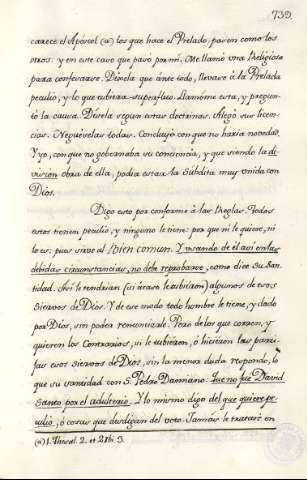 739.
carece el Apóstol (a) los que hace el Prelado, pasen como los
otros: y en este caso que pasó por mi. Me llamó una Religiosa
para confesarse. Díxela que ánte todo, llevase á la Prelada
peculio, y lo que tubiera superfluo. Llamóme esta, y pregun-
tó la causa. Díxela segun estas doctrinas. Alegó sus licen-
cias. Neguéselas todas. Concluyó conque no haría novedad.
Y yo, conque no gobernaba su conciencia, y que siendo la di-
vision obra de ella, podia estar la Subdita muy unida con
Dios.
Digo esto por conforme á las Reglas. Todos
estos tienen peculio, y ninguno le tiene: por que ni le quiere, ni
lo es: pues sirve al Bien comun. Y usando de él asi en las
debidas circunstancias, no debe reprobarse, como dice su San-
tidad. Así le tendrian (si acaso le tubieron) algunos de esos
siervos de Dios. Y de ese modo todo hombre le tiene, y dado
por Dios, sin poder renunciarle. Pero de los que corren, y
quieren los Contrarios, si le tubieron, ó hicieron las
esos siervos de Dios, sin la menor duda respondo, lo
que su santidad con S. Pedro Damiano: Que no fué David
Santo por el adulterio. Y lo mismo digo del que quiere pe-
culio, ó cosas que desdigan del voto. Jamás le trataré en
(a) 1. Thesal. 2. et 2. 3.